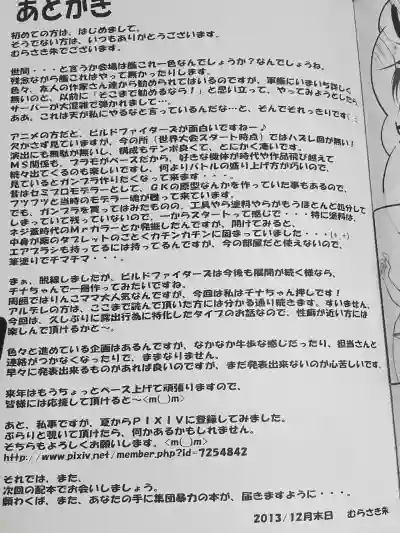 あとがき
初めての方は、はじめまして。
そうでない方は、いつもありがとうございます。
むらさき朱でございます。
世間・・・と言うか会場は艦これ一色なんでしょうか？なんでしょうね。
残念ながら艦これはやって無かったりします。
色々、友人の作家さん達から勧められてはいるのですが、軍艦にいまいち詳しく
無いのと、以前に「そこまで勧めるなら！」と思い立って、やってみようとしたら
サーバーが大混雑で弾かれまして・・。
ああ、これは天が私にやるなと言っているんだな・・・と、そんでそれっきりです
アニメの方だと、ビルドファイターズが面白いですねー♪
欠かさず見ていますが、今の所（世界大会スタート時点）ではハズレ回が無い！
演出にも無駄が無いし、構成もテンポ良くて、とにかく凄いです。
MS関係も、プラモがベースだから、好きな機体が時代や作品飛び越えて
続々出てくるのも楽しいですし、何よりバトルの盛り上げ方がいいので、
見ているとガンプラ作りたくなって来ます・・・。
昔はセミプロモデラーとして、GKの原型なんかを作っていた事もあるので、
フツフツと当時のモデラー魂が甦って来ています。
でも、ガンプラを買ってはみたものの、工具やら塗料やらがもうほとんど処分して
しまっていて残っていないので、一からスタートって感じで・・・特に塗料は
ネジ蓋時代のMrカラーとか発掘したんですが、開けてみると、
中身が薬のタブレットのごとくカチンカチンに固まっていました・・・(+_+)
エアブラシも持ってるには持ってるんですが、今の部屋だと使えないので、
筆塗りでチマチマ・・・。
まぁ、脱線しましたが、ビルドファイターズは今後も展開が続く様なら、
チナちゃんで一冊作ってみたいですね。
周囲ではりんこママ大人気なんですが、今回は私はチナちゃん押しです！
アルテレの方は、ここまで読んで頂いた方には分かる通り続きます。すいません。
今回は、久しぶりに露出行為に特化したタイプのお話なので、性癖が近い方には
楽しんで頂けるかと～。
色々と進めている企画はあるんですが、なかなか牛歩な感じだったり、担当さんと
連絡がつかなくなったりで、ままなりません。
早々に発表出来るものがあれば良いのですが、まだ発表出来ないのが心苦しいです。
来年はもうちょっとペース上げて頑張りますので、
皆様には応援して頂けると～<m(__)m>
あと、私事ですが、夏からPIXIVに登録してみました。
ぶらりと覗いて頂けたら、何かあるかもしれません。
そちらもよろしくお願いします。<m(__)m>
http://www.pixiv.net/member.php?id=7254842
それでは、また、
次回の配本でお会いしましょう。
願わくば、また、あなたの手に集団暴力の本が、届きますように・・・。
2013/12月末日 むらさき朱